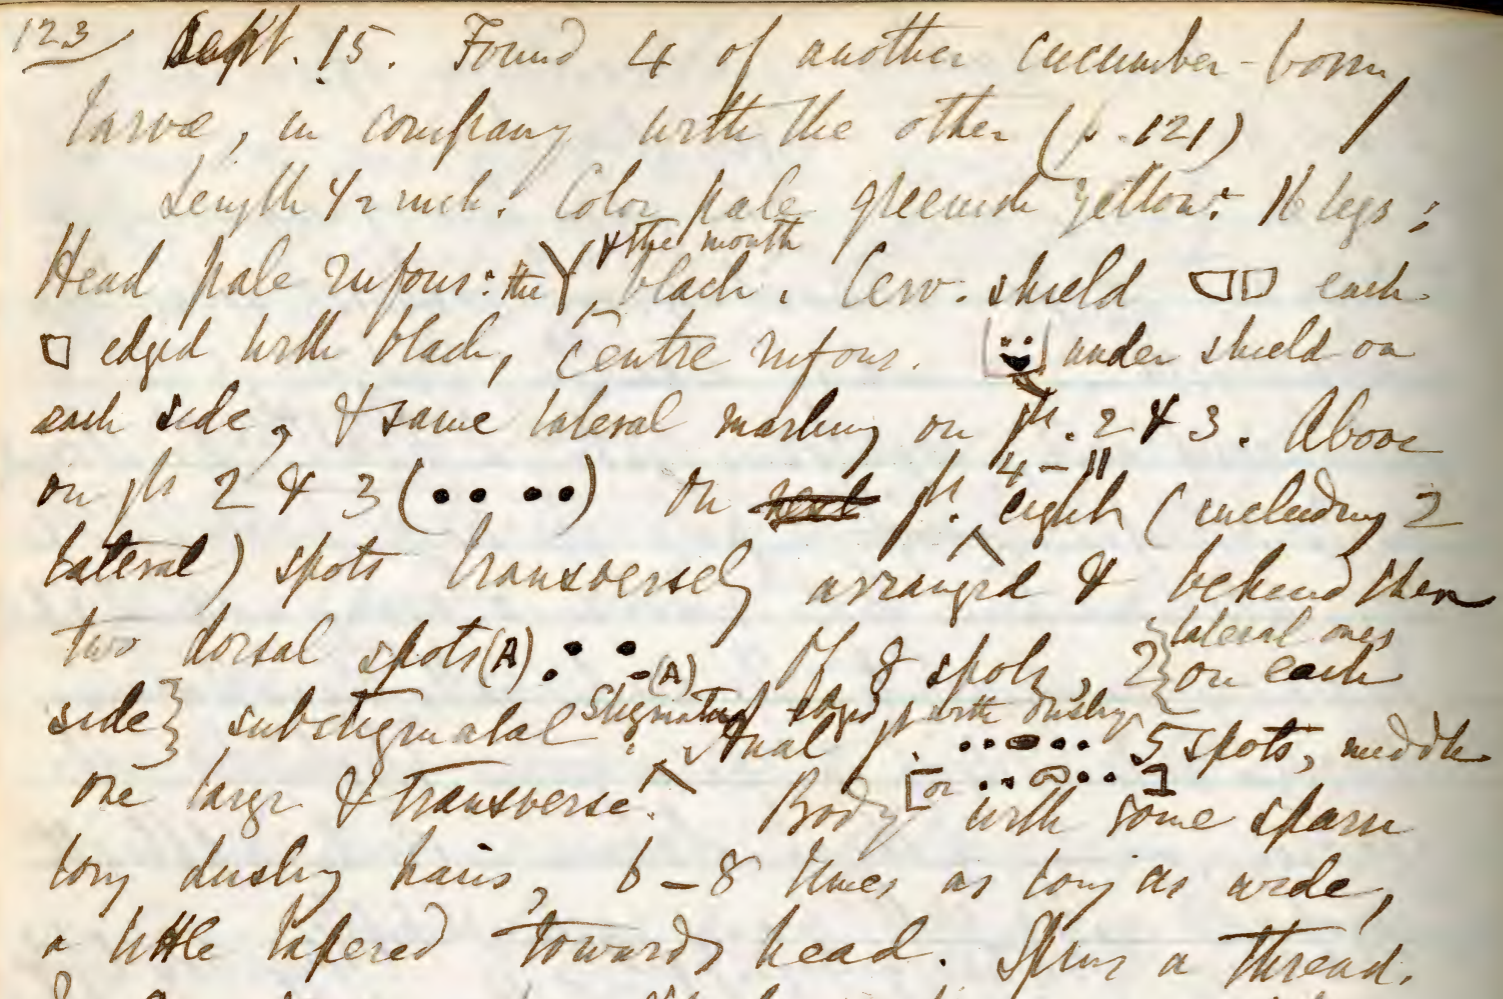 123 Sept. 15. Found 4 of another cucumber-boring
larva, in company with the other (p. 121)
Length 1/2 inch. Color pale greenish yellow: 16 legs;
& the mouth
Head pale rufous: the Y black. Cerv. shield each
edged with black, centre rufous. under shield on
each side, & same lateral marking on jts. 2 & 3. Above
4-11
on jts 2 & 3 (•• ••) On jts. eight (including 2
lateral) spots transversely arranged & behind them
two dorsal spots (A) Of 8 spots, 2 {lateral ones
(A) on each
side} substigmatal Stigmata edged with dusky
Anal jt 5 spots, middle
one large & transverse. [or ] Body with some sparse
long dusky hairs, 6-8 times as long as wide,
a little tapered towards head. Spins a thread.